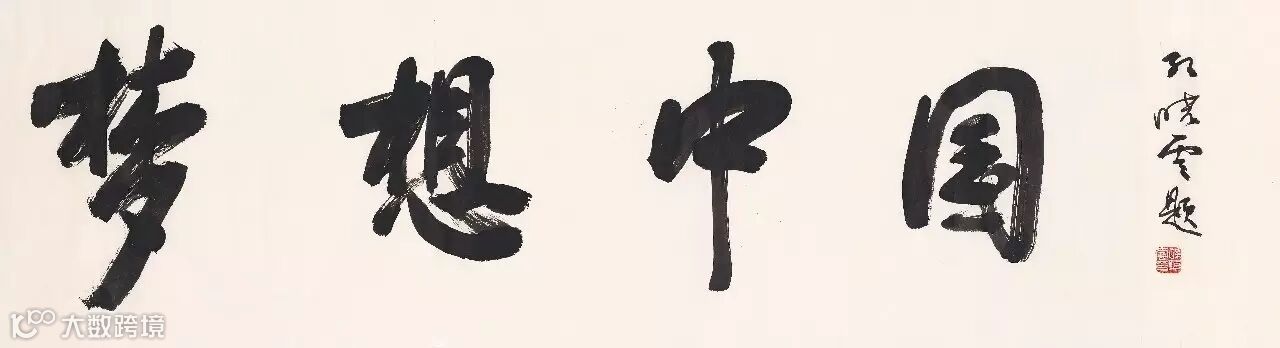 梦想中国
孙晓云题
大数跨境